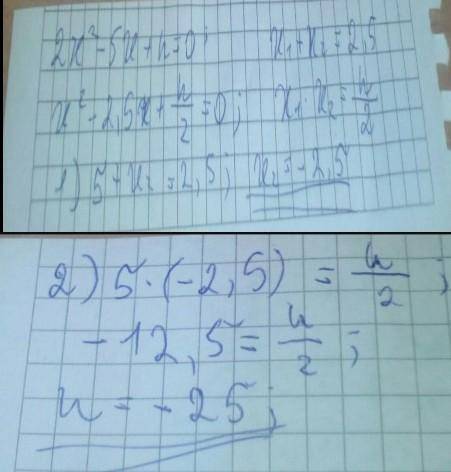 2x² - 5x + n = 0; x₁ + x₂ = 2,5
x² - 2,5x + n/2 = 0; x₁ · x₂ = n/2
1) 5 + x₂ = 2,5; x₂ = -2,5
2) 5 · (-2,5) = n/2;
-12,5 = n/2;
n = -25;